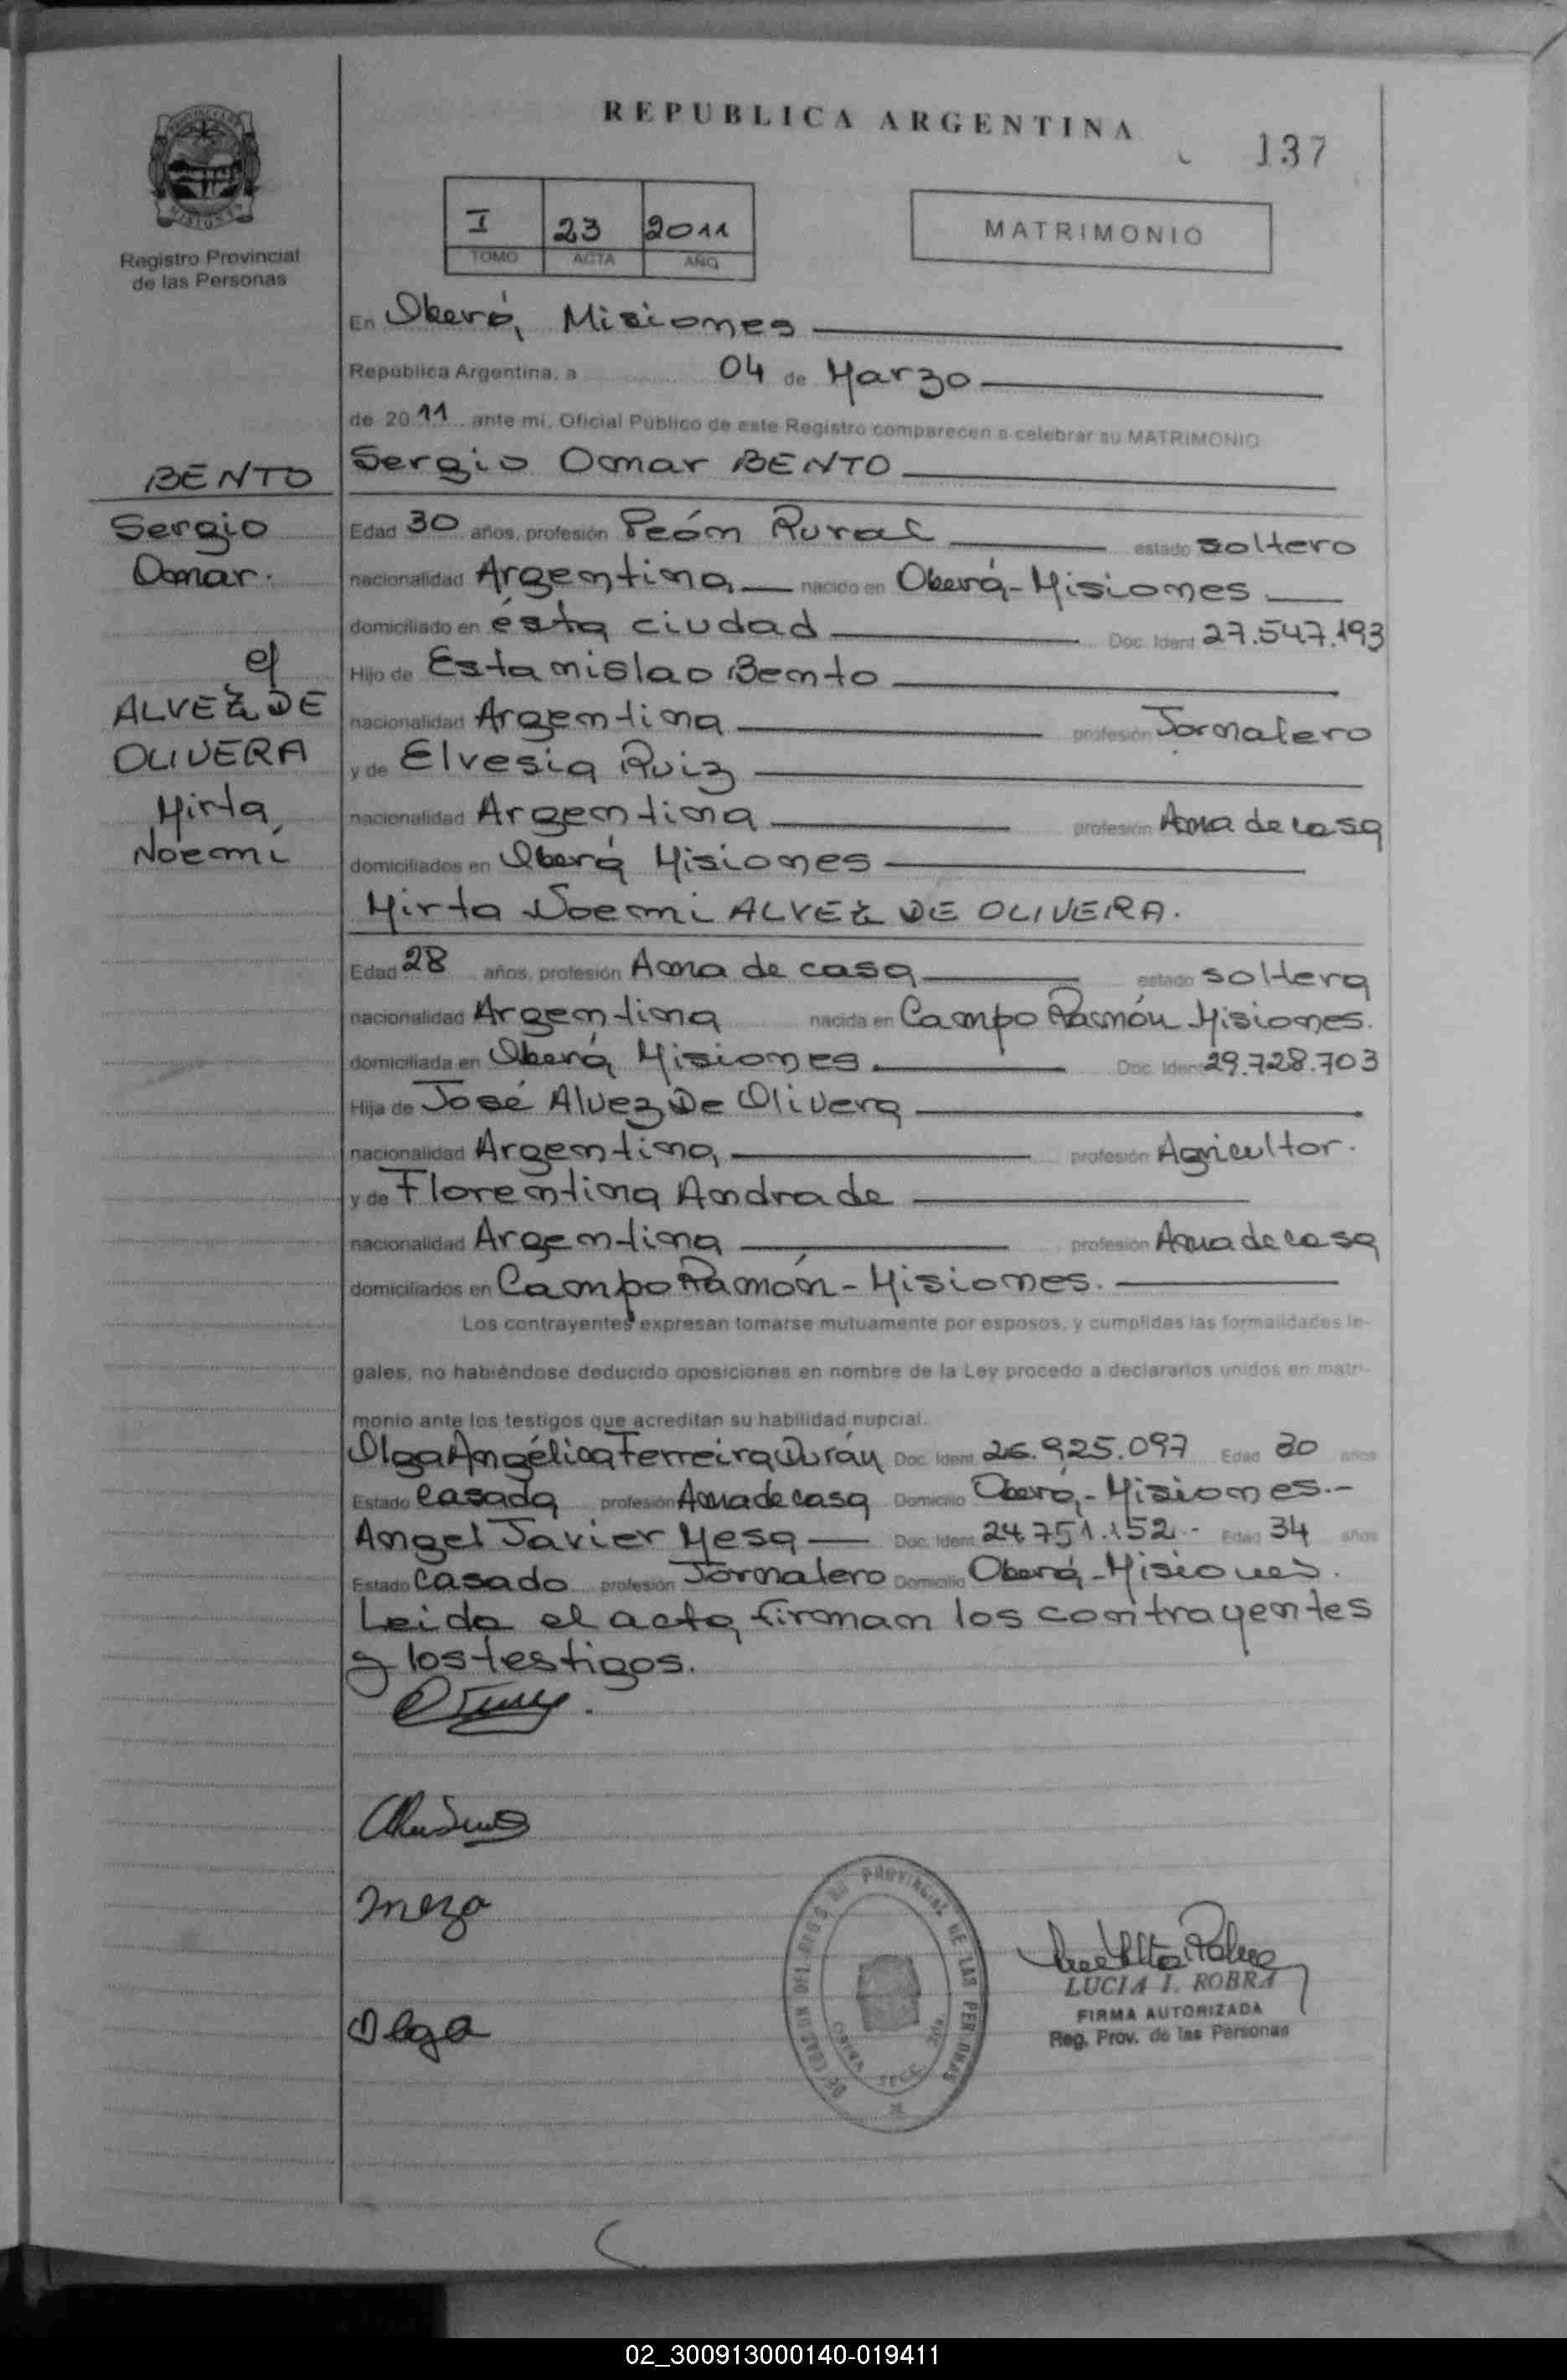 REPUBLICA ARGENTINA
137
I 23 2011
TOMO ACTA AÑO
MATRIMONIO
Registro Provincial
de las Personas
En Oberá, Misiones
Republica Argentina, a 04 de Marzo
de 2011 ante mí, Oficial Público de este Registro comparecen a celebrar su MATRIMONIO
Sergio Omar BENTO
BENTO
Sergio
Omar.
Edad 30 años, profesión Peón Rural estado soltero
nacionalidad Argentina nacido en Oberá-Misiones
domiciliado en ésta ciudad Doc. Ident 27.547.193
Hijo de Estanislao Bento
nacionalidad Argentina profesión Jornalero
y de Elvesia Ruiz
nacionalidad Argentina profesión Ama de casa
domiciliados en Oberá Misiones
ALVEZ DE
OLIVERA
Mirta
Noemí
Mirta Noemi ALVEZ DE OLIVEIRA.
Edad 28 años, profesión Ama de casa estado soltera
nacionalidad Argentina nacida en Campo Ramón Misiones.
domiciliada en Oberá Misiones Doc. Ident 29.728.703
Hija de José Alvez De Olivera
nacionalidad Argentina profesión Agricultor.
y de Florentina Andrade
nacionalidad Argentina profesión Ama de casa
domiciliados en Campo Ramón - Misiones.
Los contrayentes expresan tomarse mutuamente por esposos, y cumplidas las formalidades le-
gales, no habiéndose deducido oposiciones en nombre de la Ley procedo a declararlos unidos en matri-
monio ante los testigos que acreditan su habilidad nupcial.
Olga Angélica Ferreira Durán Doc. Ident. 26.925.097 Edad 30 años
Estado casada profesión Ama de casa Domicilio Oberá,- Misiones.-
Angel Javier Mesa Doc. Ident. 24.751.152.- Edad 34 años
Estado casado profesión Jornalero Domicilio Oberá-Misiones.
Leida el acta, firman los contrayentes
y los testigos.
meza
Olga
PROVINCIAL DE LAS PERSONAS
LUCIA I. ROBRA
FIRMA AUTORIZADA
Reg. Prov. de las Personas
02_300913000140-019411